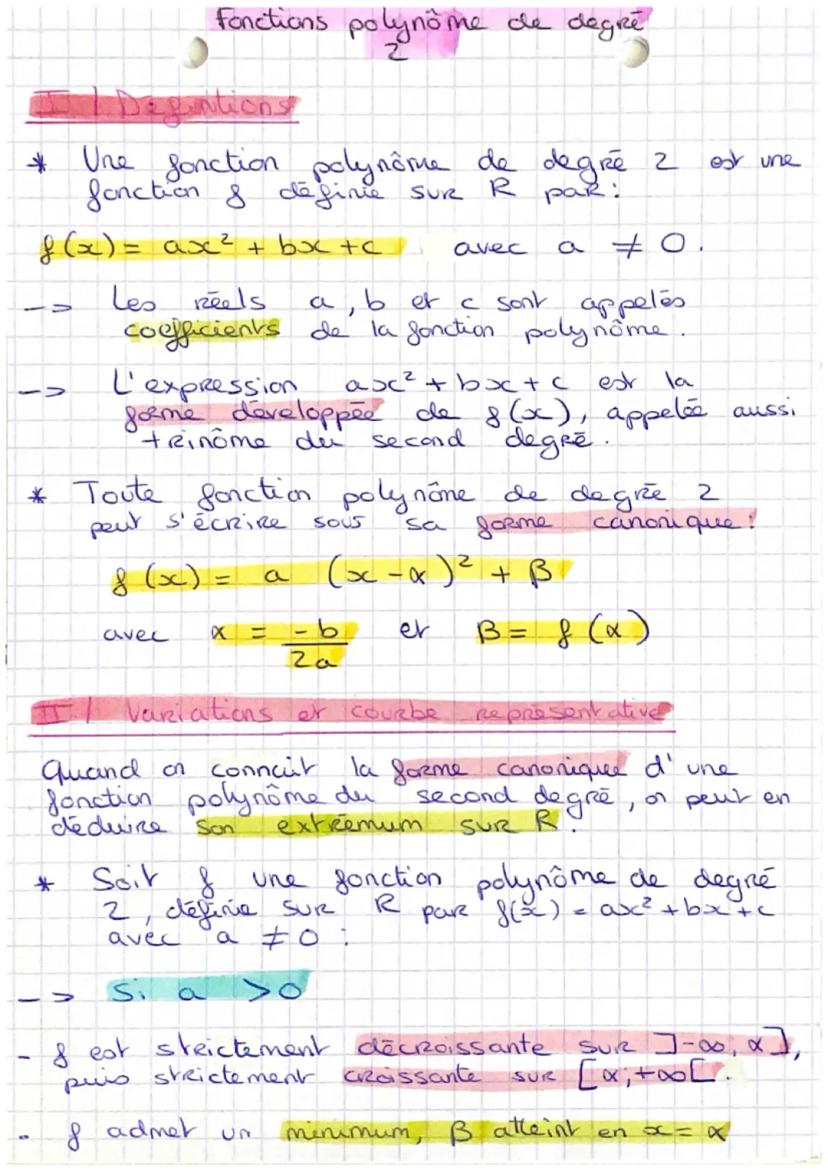 Fonctions polynôme de degré
2
I / Définitions
* Une fonction polynôme de degré 2 est une
fonction f définie sur R par :
f(x) = ax² + bx + c avec a ≠ 0.
--> Les réels a, b et c sont appelés
coefficients de la fonction polynôme.
--> L'expression ax² + bx + c est la
forme développée de f(x), appelée aussi
trinôme du second degré.
* Toute fonction polynôme de degré 2
peut s'écrire sous sa forme canonique :
f(x) = a (x - α)² + β
avec α = -b/2a et β = f(α)
II / Variations et courbe représentative
Quand on connait la forme canonique d'une
fonction polynôme du second degré, on peut en
déduire son extrêmum sur R.
* Soit f une fonction polynôme de degré
2, définie sur R par f(x) = ax² + bx + c
avec a ≠ 0 :
--> Si a > 0
- f est strictement décroissante sur ]-∞; α],
puis strictement croissante sur [α; +∞[.
- f admet un minimum, β atteint en x = α